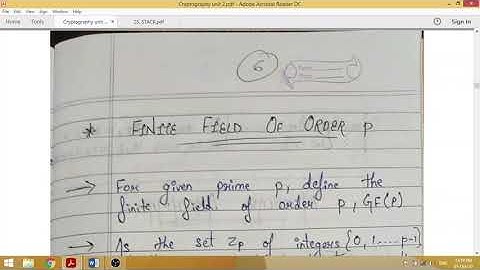 Cryptography unit 2.pdf - Adobe Acrobat Reader DC
File Edit View Sign Window Help
Home Tools Cryptography unit ... 2S_STACK.pdf Sign In
6
* FINITE FIELD OF ORDER p
→ For given prime p, define the
finite field of order p, GF(p)
→ As the set Zp of integers {0, 1....p-1}